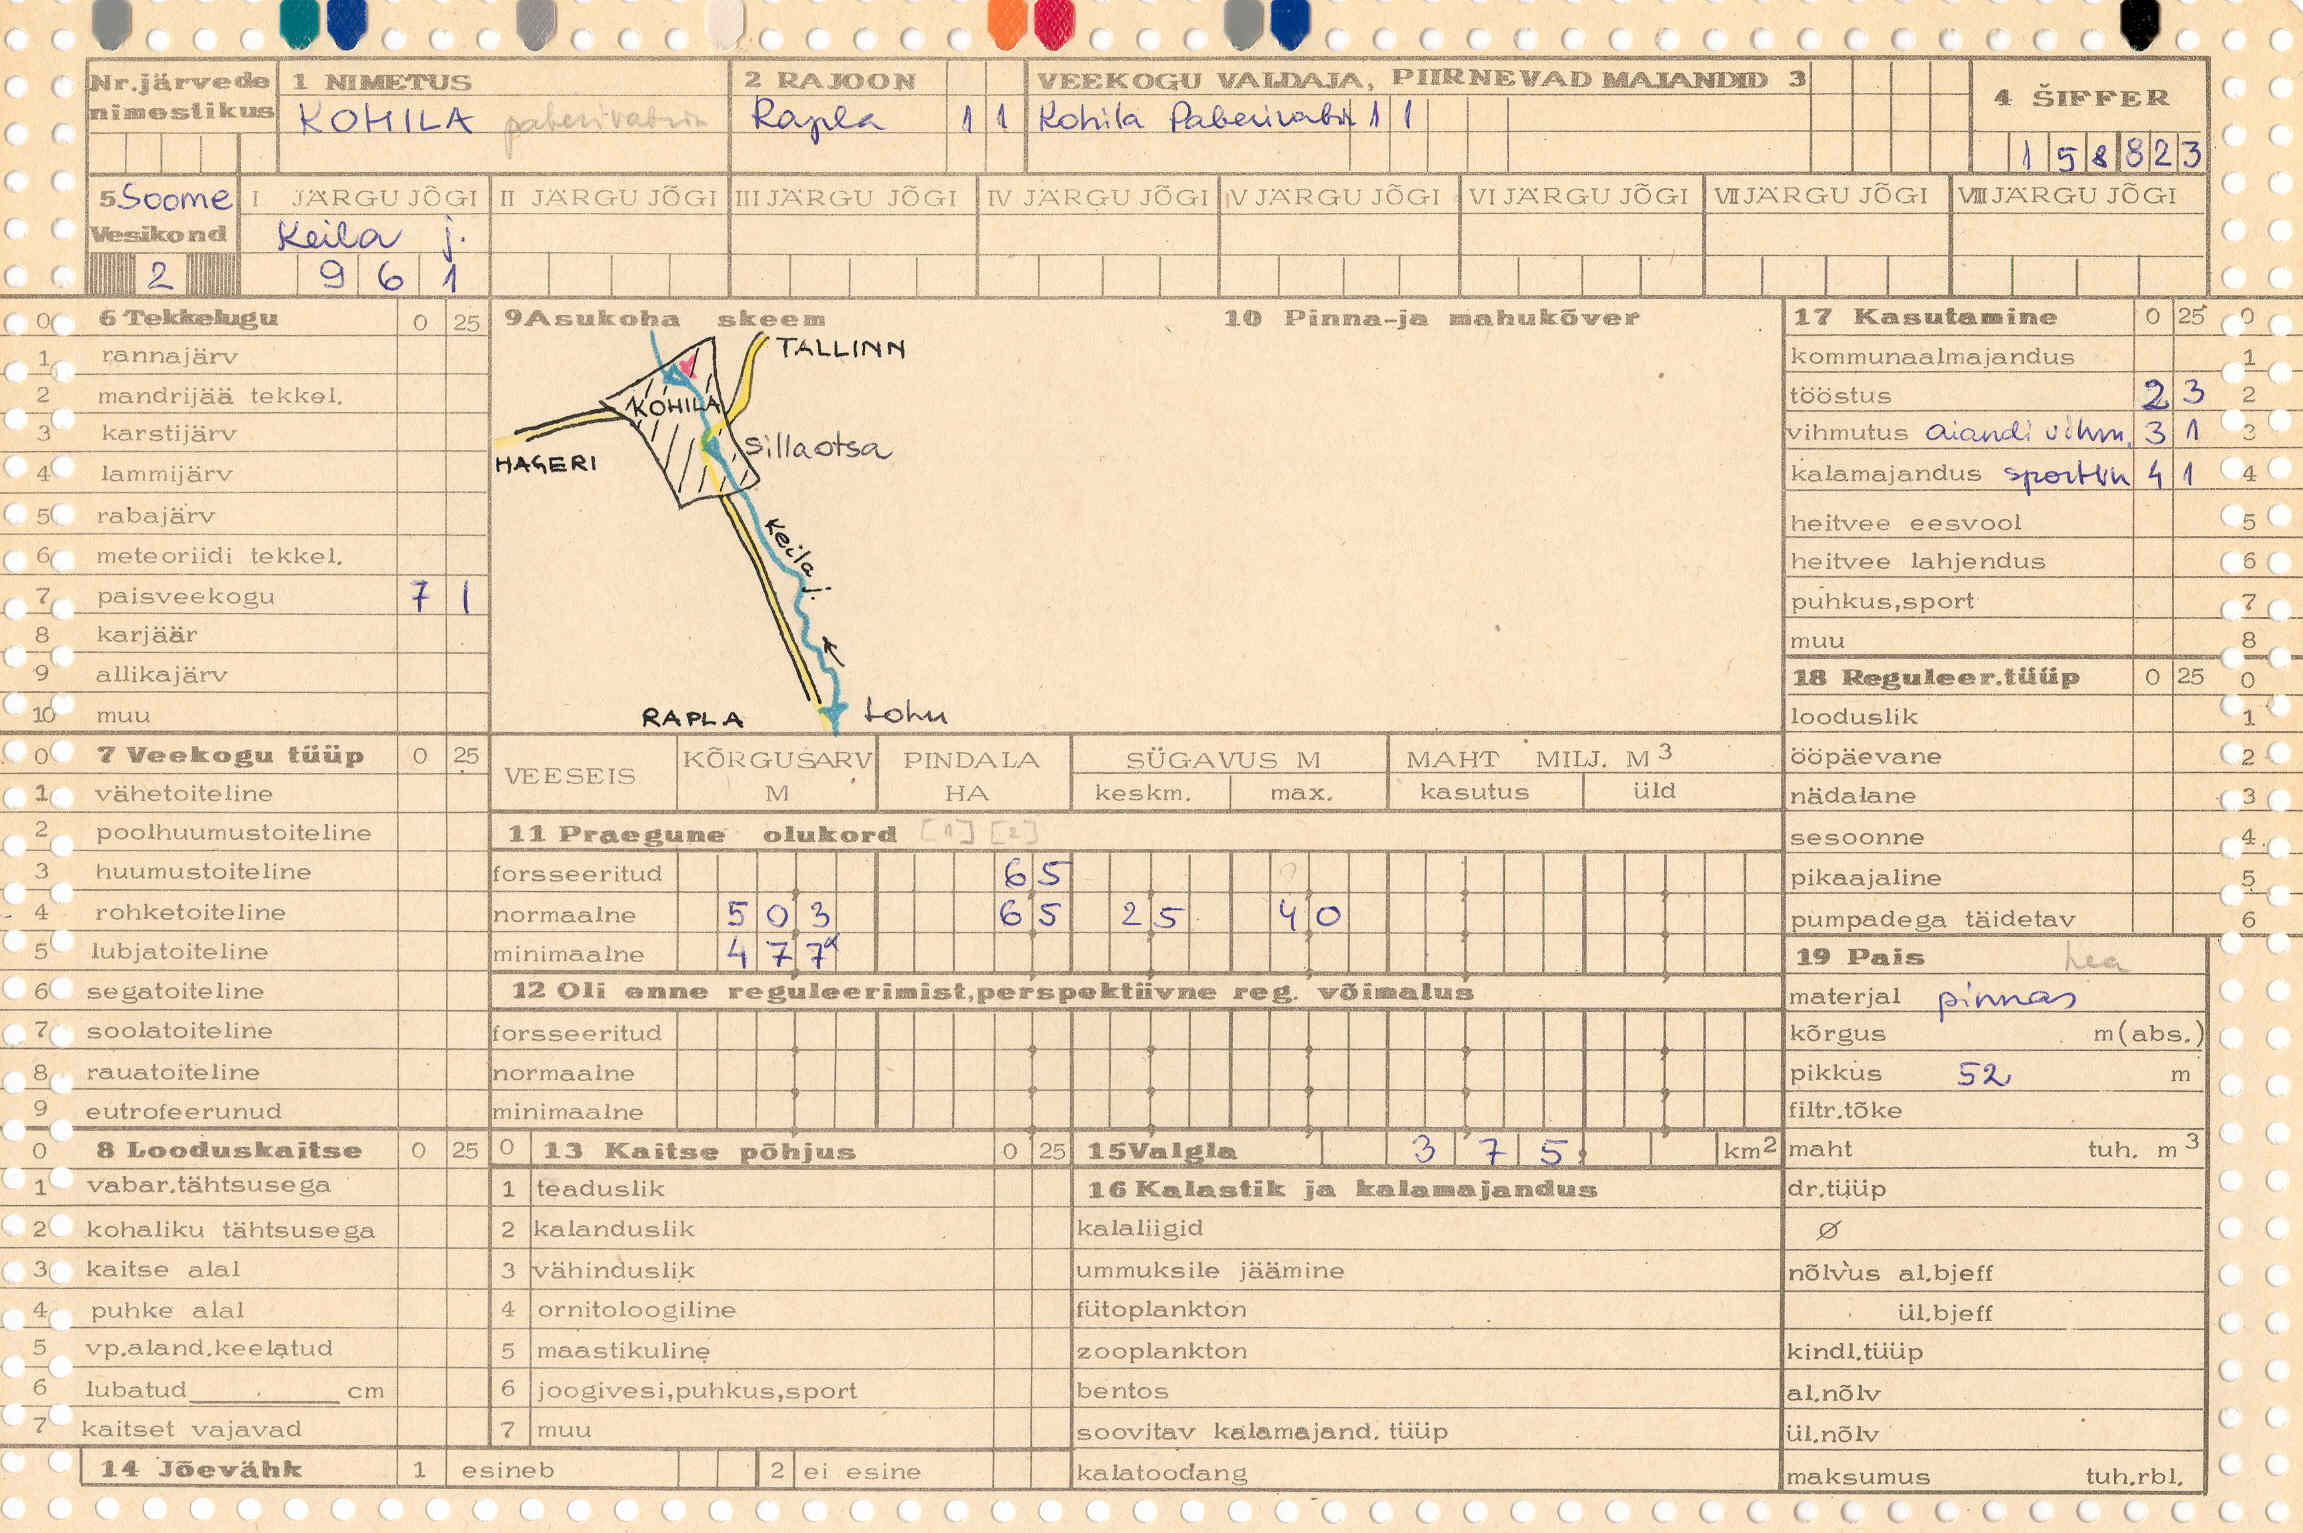 Nr.järvede nimestikus
1 NIMETUS
KOHILA paberivabrik
2 RAJOON
Rapla 1 1
VEEKOGU VALDAJA, PIIRNEVAD MAJANDID 3
Kohila Paberivabr 1 1
4 ŠIFFER
1 5 8 8 2 3
5 Soome Vesikond
2
I JÄRGU JÕGI
Keila j.
9 6 1
II JÄRGU JÕGI
III JÄRGU JÕGI
IV JÄRGU JÕGI
V JÄRGU JÕGI
VI JÄRGU JÕGI
VII JÄRGU JÕGI
VIII JÄRGU JÕGI
0 6 Tekkelugu 0 25
1 rannajärv
2 mandrijää tekkel.
3 karstijärv
4 lammijärv
5 rabajärv
6 meteoriidi tekkel.
7 paisveekogu 7 1
8 karjäär
9 allikajärv
10 muu
0 7 Veekogu tüüp 0 25
1 vähetoiteline
2 poolhuumustoiteline
3 huumustoiteline
4 rohketoiteline
5 lubjatoiteline
6 segatoiteline
7 soolatoiteline
8 rauatoiteline
9 eutrofeerunud
0 8 Looduskaitse 0 25
1 vabar.tähtsusega
2 kohaliku tähtsusega
3 kaitse alal
4 puhke alal
5 vp.aland.keelatud
6 lubatud cm
7 kaitset vajavad
14 Jõevähk 1 esineb 2 ei esine
9 Asukoha skeem
TALLINN
KOHILA
HAGERI
Sillaotsa
Keila j.
RAPLA
Lohu
10 Pinna-ja mahukõver
VEESEIS
KÕRGUSARV M
PINDALA HA
SÜGAVUS M
keskm. max.
MAHT MILJ. M3
kasutus üld
11 Praegune olukord [1] [2]
forsseeritud 6 5
normaalne 5 0 3 6 5 2 5 4 0
minimaalne 4 7 7x
12 Oli enne reguleerimist,perspektiivne reg. võimalus
forsseeritud
normaalne
minimaalne
0 13 Kaitse põhjus 0 25
1 teaduslik
2 kalanduslik
3 vähinduslik
4 ornitoloogiline
5 maastikuline
6 joogivesi,puhkus,sport
7 muu
15 Valgla 3 7 5 km2
16 Kalastik ja kalamajandus
kalaliigid
ummuksile jäämine
fütoplankton
zooplankton
bentos
soovitav kalamajand. tüüp
kalatoodang
17 Kasutamine 0 25 0
kommunaalmajandus 1
tööstus 2 3 2
vihmutus aiandi vihm. 3 1 3
kalamajandus 4 1 4
heitvee eesvool 5
heitvee lahjendus 6
puhkus,sport 7
muu 8
18 Reguleer.tüüp 0 25 0
looduslik 1
ööpäevane 2
nädalane 3
sesoonne 4
pikaajaline 5
pumpadega täidetav 6
19 Pais hea
materjal pinnas
kõrgus m(abs.)
pikkus 52 m
filtr.tõke
maht tuh. m3
dr.tüüp
Ø
nõlvus al.bjeff
ül.bjeff
kindl.tüüp
al.nõlv
ül.nõlv
maksumus tuh.rbl.